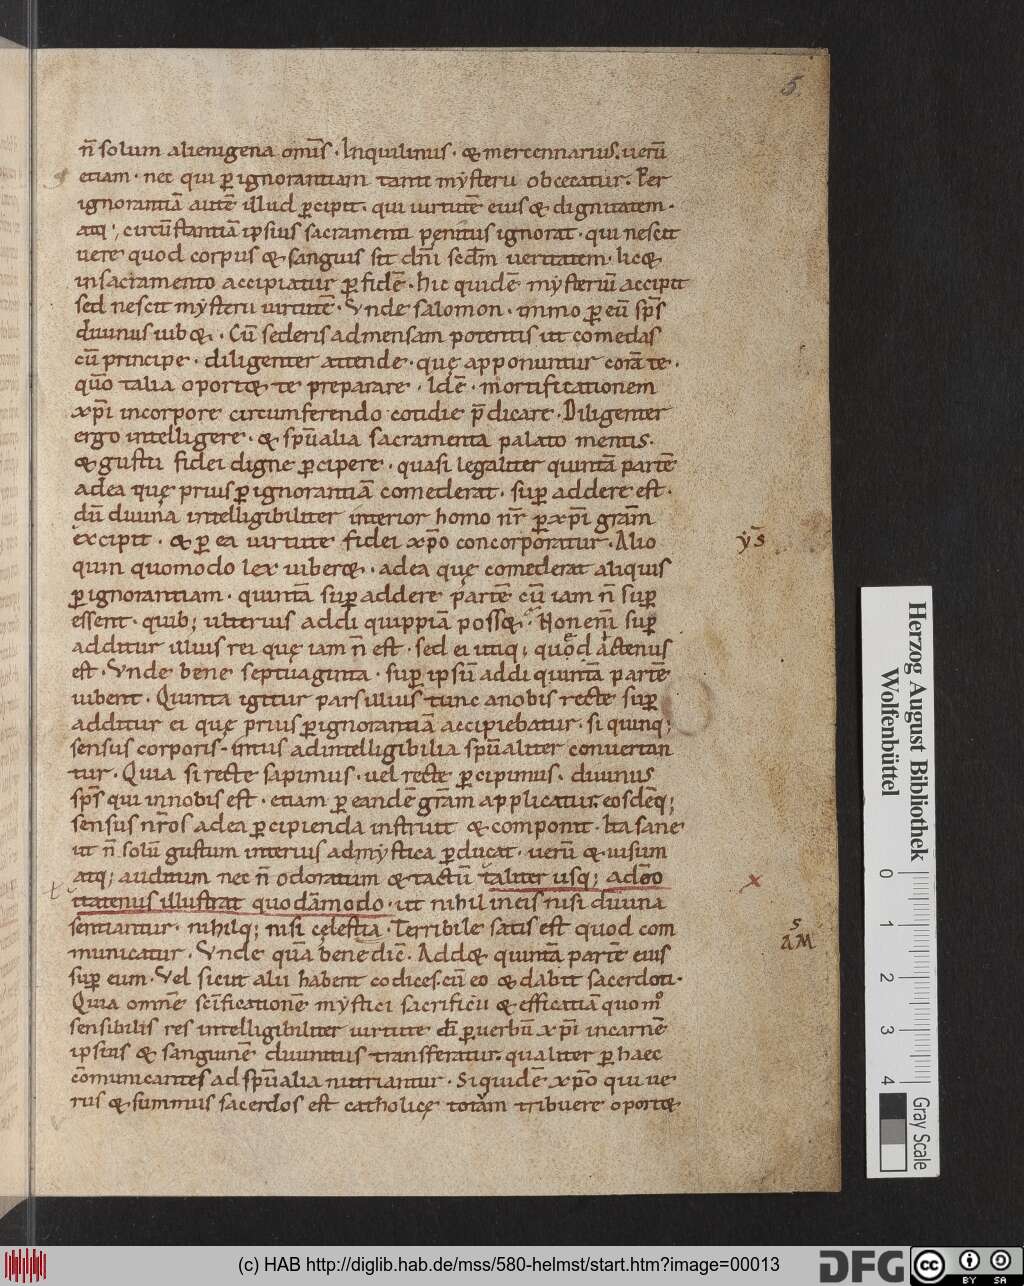 5.
n̄ solum alienigena om̄is · Inquilinus · & mercennarius. uerū
etiam · nec qui ꝑ ignorantiam tanti mẏsterii obcecatur. Per
ignorantiā autē illud ꝑcipit. qui uirtutē eius & dignitatem ·
atq; circūstantiā ipsius sacramenti penitus ignorat · qui nescit
uere quod corpus & sanguis sit dn̄i scd̄m ueritatem · lic&
in sacramento accipiatur ꝑ fidē · hic quidē mẏsteriū accipit
sed nescit mẏsterii uirtutē · Vnde salomon · immo ꝑ eū sp̄s
diuinus iub& · Cū sederis ad mensam potentis ut comedas
cū principe · diligenter attende · quę apponuntur corā te ·
qūo talia oport& te preparare · Idē · mortificationem
xp̄i in corpore circumferendo cotidie p̄dicare · Diligenter
ergo intelligere · & sp̄ualia sacramenta palato mentis ·
& gustu fidei digne ꝑcipere · quasi legaliter quintā partē
ad ea quę prius ꝑ ignorantiā comederat · suꝑ addere est ·
dū diuina intelligibiliter interior homo nr̄ ꝑ xp̄i grām
excipit · & ꝑ ea uirtute fidei xp̄o concorporatur · Alio
quin quomodo lex iuber& · ad ea quę comederat aliquis
ꝑ ignorantiam · quintā suꝑ addere partē cū iam n̄ suꝑ
essent · quib; ulterius addi quippiā poss& · Non eni̅ suꝑ
additur illius rei quę iam n̄ est · sed ei utiq; quod actenus
est · Vnde bene septuaginta · suꝑ ipsū addi quintā partē
iubent · Quinta igitur pars illius tunc a nobis recte suꝑ
additur ei quę prius ꝑ ignorantiā accipiebatur · si quinq;
sensus corporis · intus ad intelligibilia sp̄ualiter conuertan
tur · Quia si recte sapimus · uel recte ꝑcipimus · diuinus
sp̄s qui in nobis est · etiam ꝑ eandē grām applicatur. eosdēq;
sensus nr̄os ad ea ꝑcipienda instruit & componit · Ita sane
ut n̄ solū gustum interius ad mẏstica ꝑducat · uerū & uisum
atq; auditum nec n̄ odoratum & tactū taliter usq; adeo
tatenus illustrat quodāmodo · ut nihil in eis nisi diuina
sentiantur · nihilq; nisi cęlestia · Terribile satis est quod com
municatur · Vnde quā bene dic̄ · Add& quintā partē eius
suꝑ eum · Vel sicut alii habent codices. cū eo & dabit sacerdoti ·
Quia omnē sc̄ificationē mẏstici sacrificii & efficatiā quomo
sensibilis res intelligibiliter uirtute dī ꝑ uerbū xp̄i in carnē
ipsius & sanguinē diuinitus transferatur. qualiter ꝑ haec
cōmunicantes ad sp̄ualia nutriantur · Siquidē xp̄o qui ue
rus & summus sacerdos est catholicę totam tribuere oport&
Herzog August Bibliothek
Wolfenbüttel
0 1 2 3 4
Gray Scale
(c) HAB http://diglib.hab.de/mss/580-helmst/start.htm?image=00013
DFG
cc BY SA